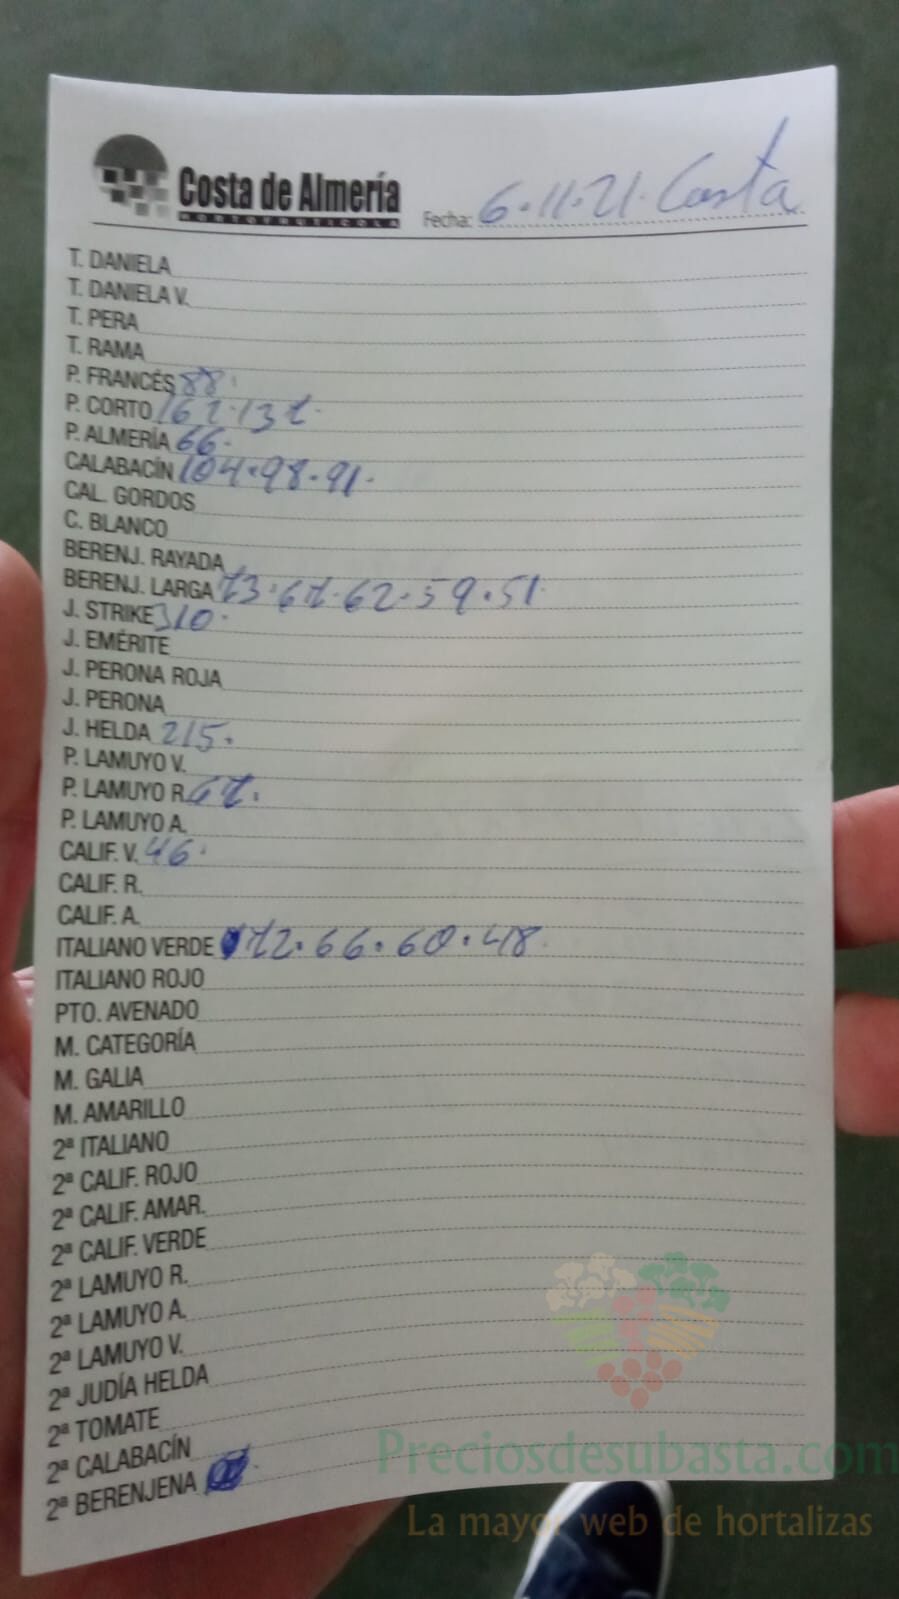 Costa de Almería
HORTOFRUTICOLA
Fecha: 6.11.21. Costa
T. DANIELA
T. DANIELA V.
T. PERA
T. RAMA
P. FRANCÉS 88.
P. CORTO 162.137.
P. ALMERÍA 66.
CALABACÍN 104.98.91.
CAL. GORDOS
C. BLANCO
BERENJ. RAYADA
BERENJ. LARGA 73.67.62.59.51.
J. STRIKE 310.
J. EMÉRITE
J. PERONA ROJA
J. PERONA
J. HELDA 215.
P. LAMUYO V.
P. LAMUYO R. 67.
P. LAMUYO A.
CALIF. V. 46.
CALIF. R.
CALIF. A.
ITALIANO VERDE 72.66.60.48.
ITALIANO ROJO
PTO. AVENADO
M. CATEGORÍA
M. GALIA
M. AMARILLO
2ª ITALIANO
2ª CALIF. ROJO
2ª CALIF. AMAR.
2ª CALIF. VERDE
2ª LAMUYO R.
2ª LAMUYO A.
2ª LAMUYO V.
2ª JUDÍA HELDA
2ª TOMATE
2ª CALABACÍN
2ª BERENJENA
Preciosdesubasta.com
La mayor web de hortalizas